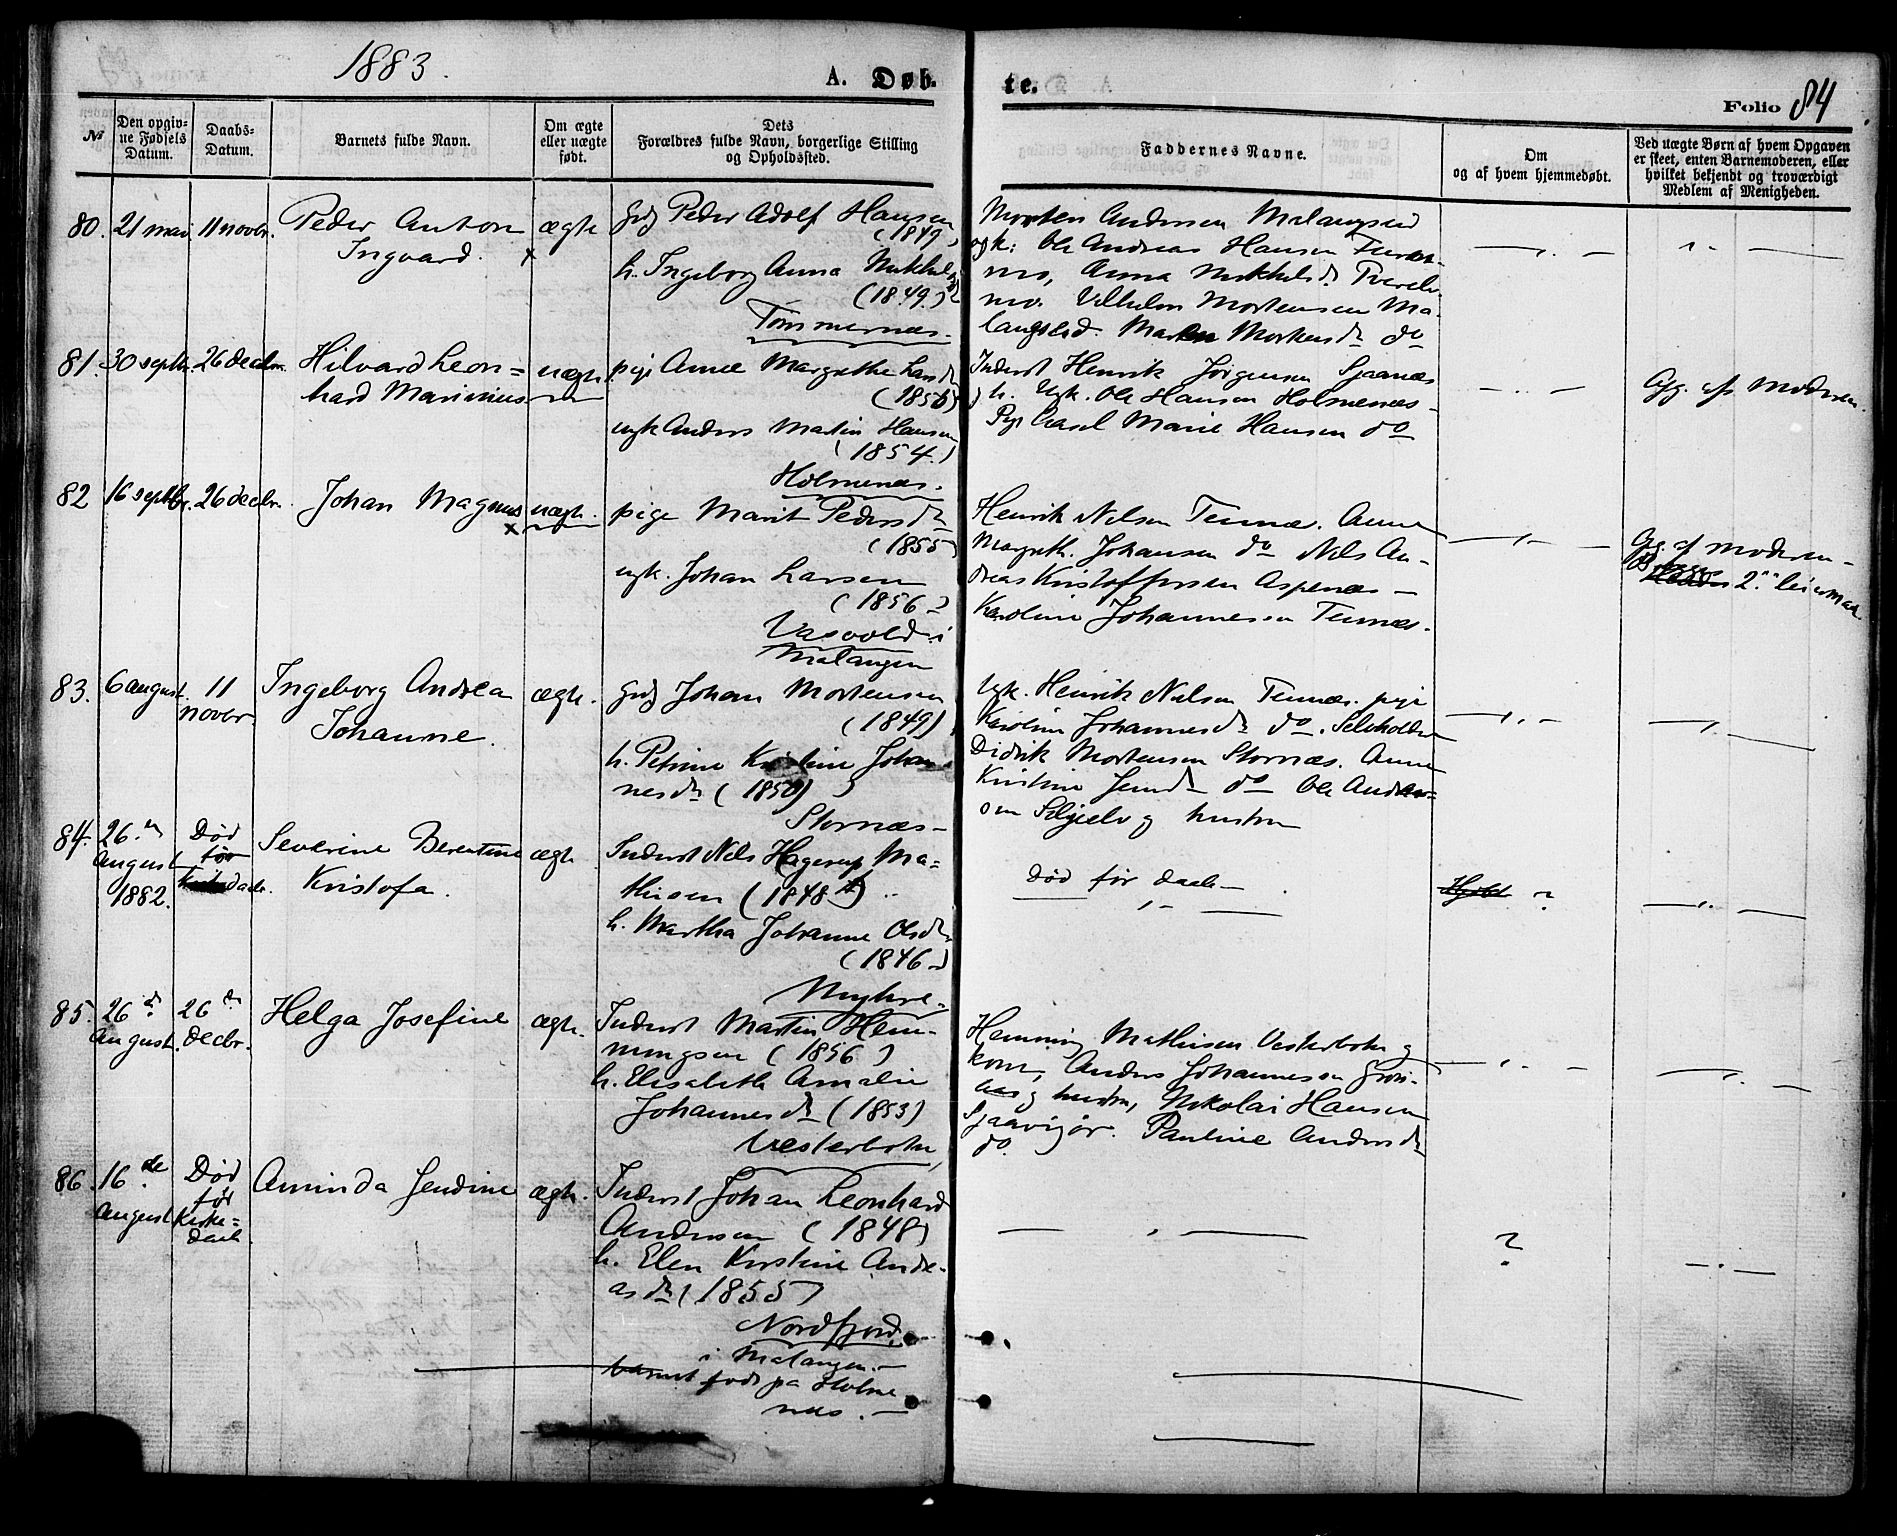 1883.
A. Døb.
te.
Folio 84
№
Den opgiv-
ne Fødsels
Datum.
Daabs-
Datum.
Barnets fulde Navn.
Om ægte
eller uægte
født.
Dets
Forældres fulde Navn, borgerlige Stilling
og Opholdssted.
Faddernes Navne.
Om
og af hvem hjemmedøbt.
Ved uægte Børn af hvem Opgaven
er skeet, enten Barnemoderen, eller
hvilket bekjendt og troværdigt
Medlem af Menigheden.
80. 21 mai 11 novbr. Peder Anton ægte
Ingvard. x
Peder Adolf Hansen
(1849)
h. Ingeborg Anna
(1849)
Tømmernæs.
Morten Andersen Malangseid
Ole Andreas Hansen
mo, Anna
mo. Vilhelm Mortensen Ma-
langseid. Mortensdr do
81. 30 septbr. 26 decbr. Hilvard Leon=
hard Marinius
uægte
pige Anne Margrethe Larsdr
(1856)
ugk Anders Martin Hansen
(1854.)
Holmenæs.
Inderst Henrik Jørgensen Sjaanæs
h. Ugk. Ole Hansen Holmenæs
Pige Marie Hansen do
Opg. af Moderen.
82 16 septbr. 26 decbr. Johan Magnus uægte.
x
pige Marit Pedersdr
(1855)
ugk. Johan Larsen
(1856)
i
Malangen
Henrik Nilsen Tennæs. Anne
Margreth. Johansen do Nils An-
dreas Kristoffersen Aspenæs -
Karoline Johannessen Tennæs.
Opg. af moderen -
2. leiermaal
83. 6 august. 11
novbr.
Ingeborg Andrea ægte.
Johanne.
Johan Mortensen
(1849)
h. Petrine Kristine Johan
nesdr (1850)
Stornæs -
Ugk. Henrik Nielsen Tennæs. pige
Karoline Johannesdr do. Selvholden
Didrik Mortensen Stornæs. Anne
Kristine Jensdr do Ole Ander=
sen og hustru
84. 26.
August
1882.
Død
før
daab.
Severine Berentine ægte
Kristofa.
Inderst Nils Hagerup Ma=
thisen (1848)
h. Martha Johanne Olsdr
(1846)
Død før daab - .
?
85. 26
August.
26
decbr.
Helga Josefine ægte.
Inderst Martin Hem-
mingsen (1856)
h. Elisabeth Amalie
Johannesdr (1853)
Vesterbotn
Hemming Mathisen Vesterbotn og
kone, Anders Johannesen
og hustru, Nikolai Hansen
Pauline Andersdr
do
86. 16de
August
Død
før
Kirke=
daab.
Aminda Jendine ægte.
Inderst Johan Leonhard
Andersen (1848)
h. Elen Kirstine Andre-
asdr (1855)
Nordfjord
i Malangen. -
barnet født pa Holme
næs. -
?